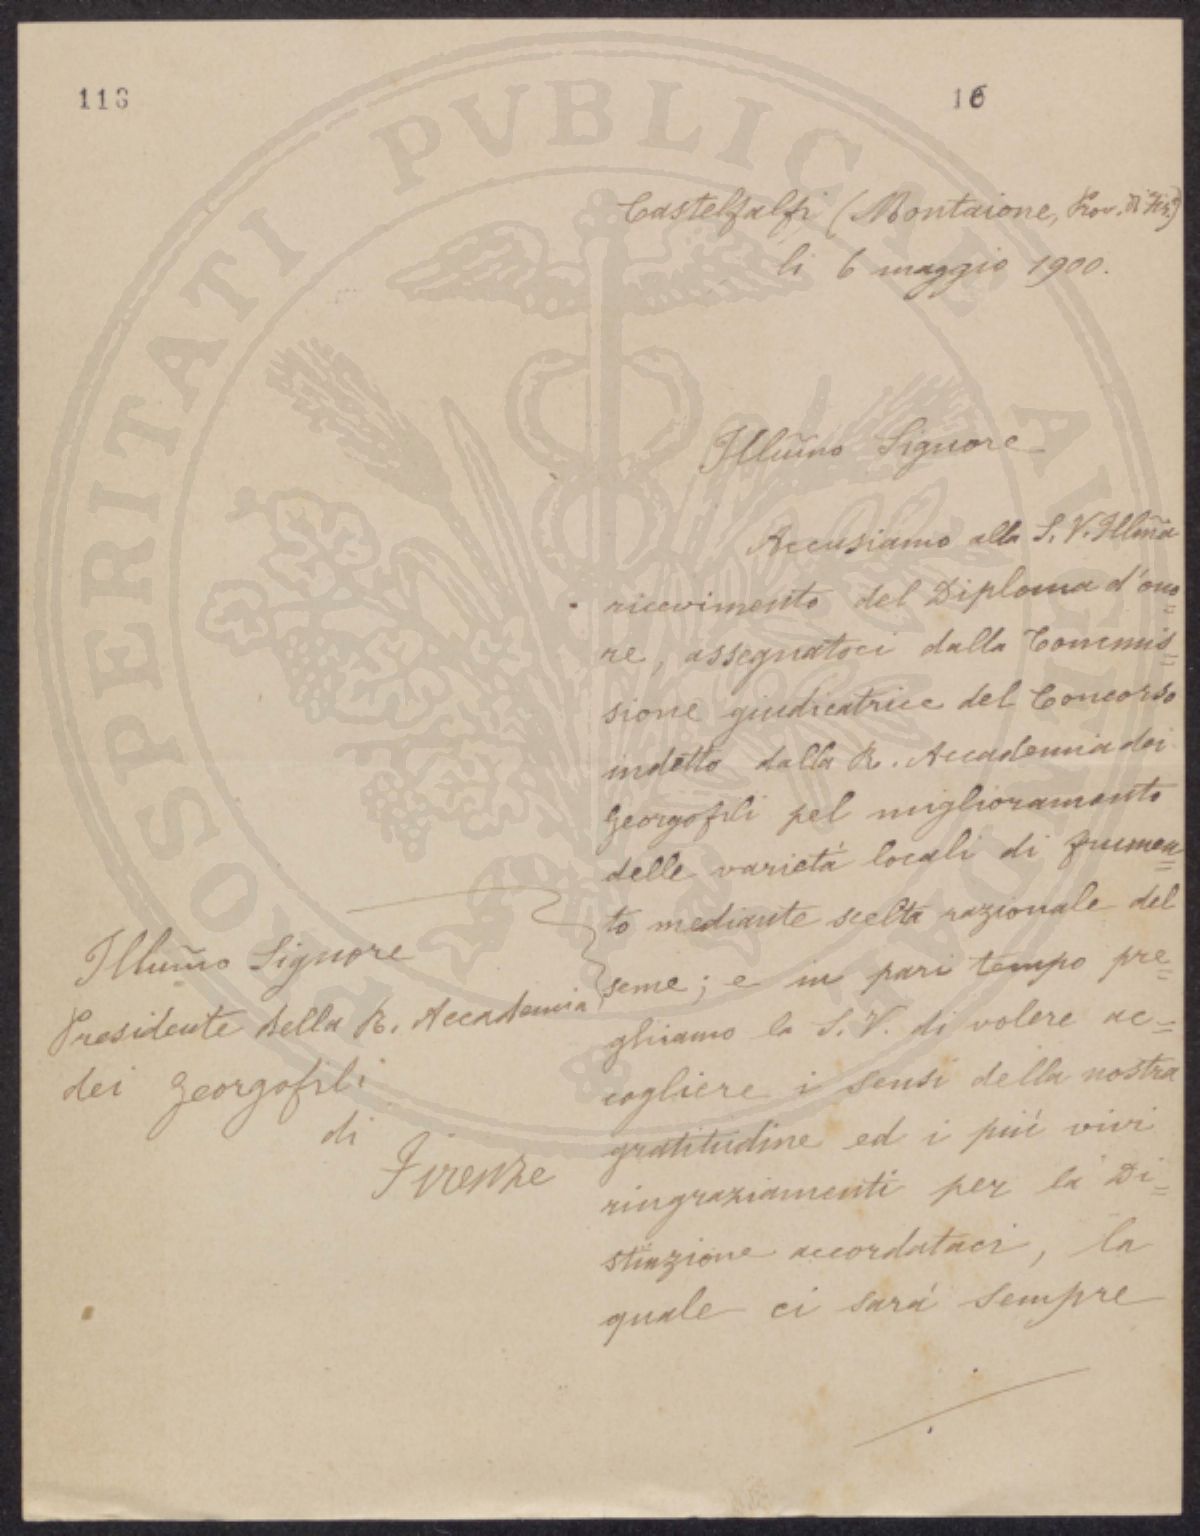 116
16
PROSPERITATI PVBLICAE AVGENDAE
Castelfalfi (Montaione, Prov. di Fir.)
li 6 maggio 1900.
Illũmo Signore
Accusiamo alla S. V. Illm̃a
ricevimento del Diploma d'ono=
re, assegnatoci dalla Commis=
sione giudicatrice del Concorso
indetto dalla R. Accademia dei
Georgofili pel miglioramento
delle varietà locali di frumen=
to mediante scelta razionale del
seme; e in pari tempo pre=
ghiamo la S. V. di volere ac=
cogliere i sensi della nostra
gratitudine ed i più vivi
ringraziamenti per la Di=
stinzione accordataci, la
quale ci sarà sempre
Illũmo Signore
Presidente della R. Accademia
dei Georgofili
di
Firenze